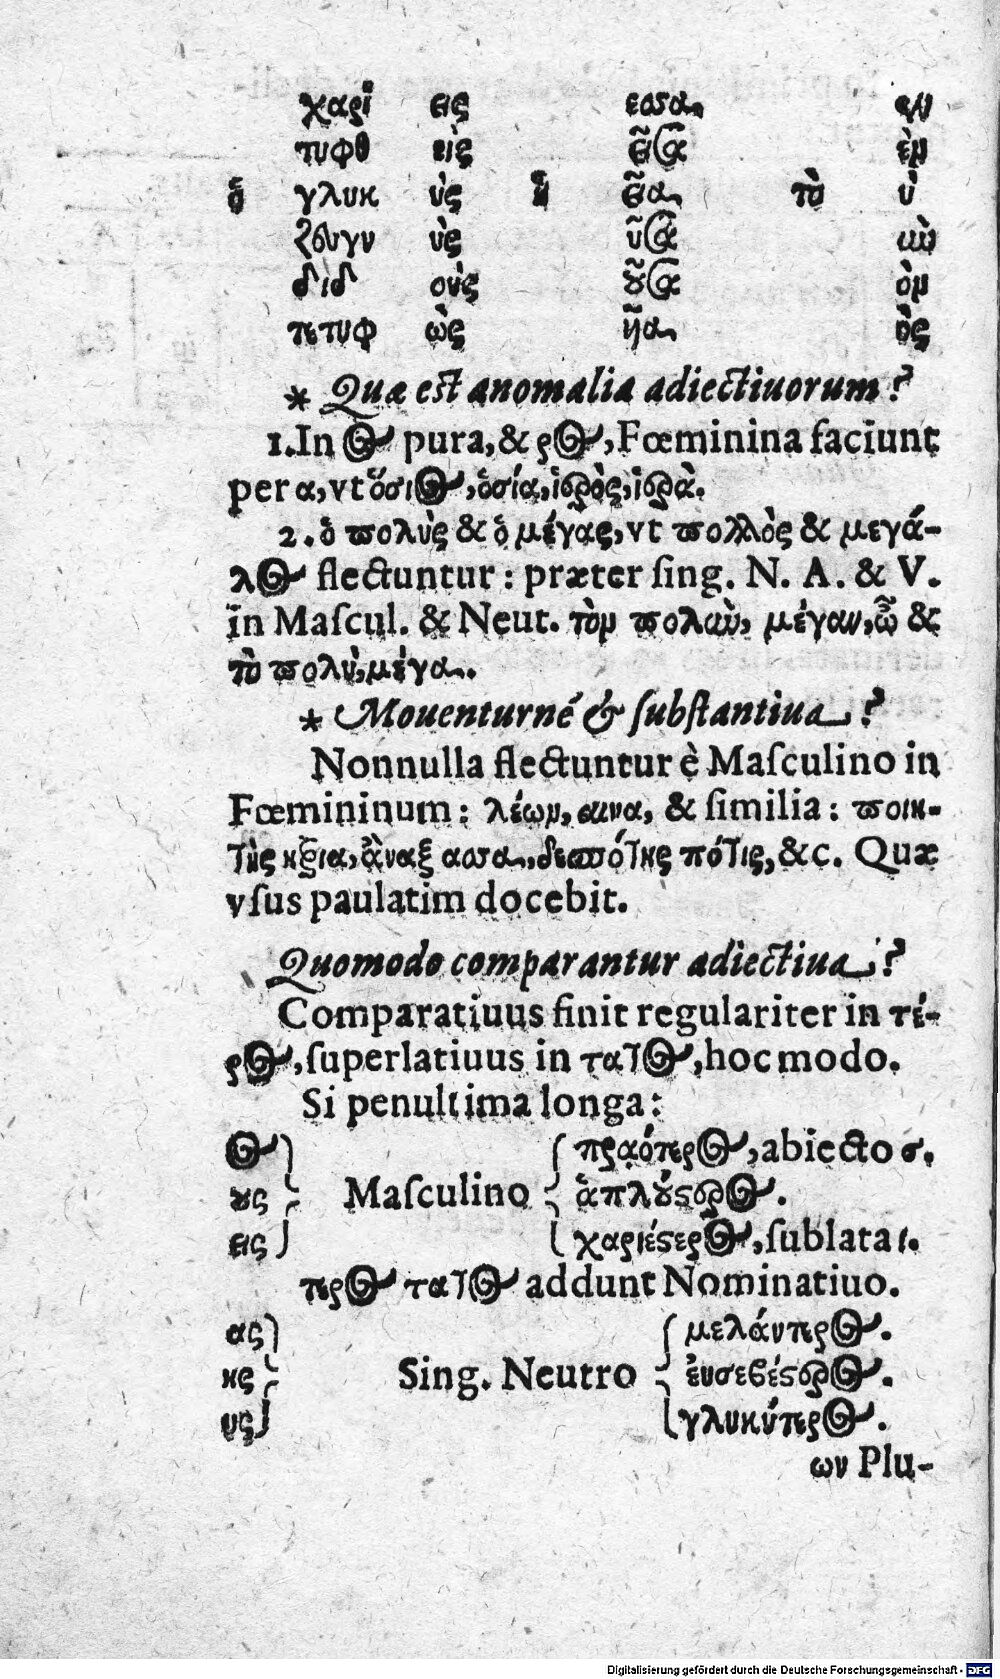 χαρί εις εσσα εν
τυφθ εὶς εῖσα ὲν
ὁ γλυκ ὺς ἡ εῖα τὸ ὺ
ζευγν ὺς ῦσα ὺν
διδ οὺς οῦσα ὸν
τετυφ ὼς ῦια ὸς
* Quæ est anomalia adiectiuorum?
1. In ος pura, & ρος, Fœminina faciunt
per α, vt ὅσιος, ὁσία, ἱερὸς, ἱερὰ.
2. ὁ πολὺς & ὁ μέγας, vt πολλὸς & μεγά-
λος flectuntur: præter sing. N. A. & V.
in Mascul. & Neut. τὸν πολὺν, μέγαν, ὦ &
τὸ πολὺ, μέγα.
* Mouenturné & substantiua?
Nonnulla flectuntur è Masculino in
Fœmininum: λέων, αινα, & similia: ποιη-
τὴς τρια, ἄναξ ασσα, δεσπότης πότις, &c. Quæ
vsus paulatim docebit.
Quomodo comparantur adiectiua?
Comparatiuus finit regulariter in τέ-
ρος, superlatiuus in τατος, hoc modo.
Si penultima longa:
ος } { πραότερος, abiecto σ.
ους } Masculino { ἁπλούστερος.
εις } { χαριέστερος, sublata ι.
τερος τατος addunt Nominatiuo.
ας } { μελάντερος.
ης } Sing. Neutro { ἐυσεβέστερος.
υς } { γλυκύτερος.
ων Plu-
Digitalisierung gefördert durch die Deutsche Forschungsgemeinschaft - DFG